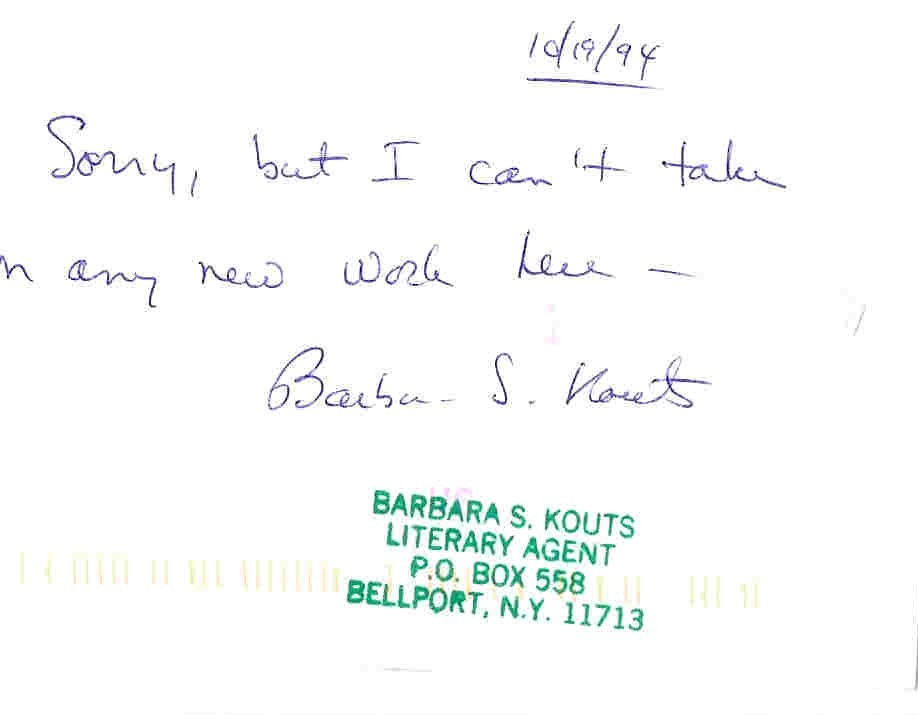 10/19/94
Sorry, but I can't take
n any new work here —
Barbara S. Kouts
BARBARA S. KOUTS
LITERARY AGENT
P.O. BOX 558
BELLPORT, N.Y. 11713